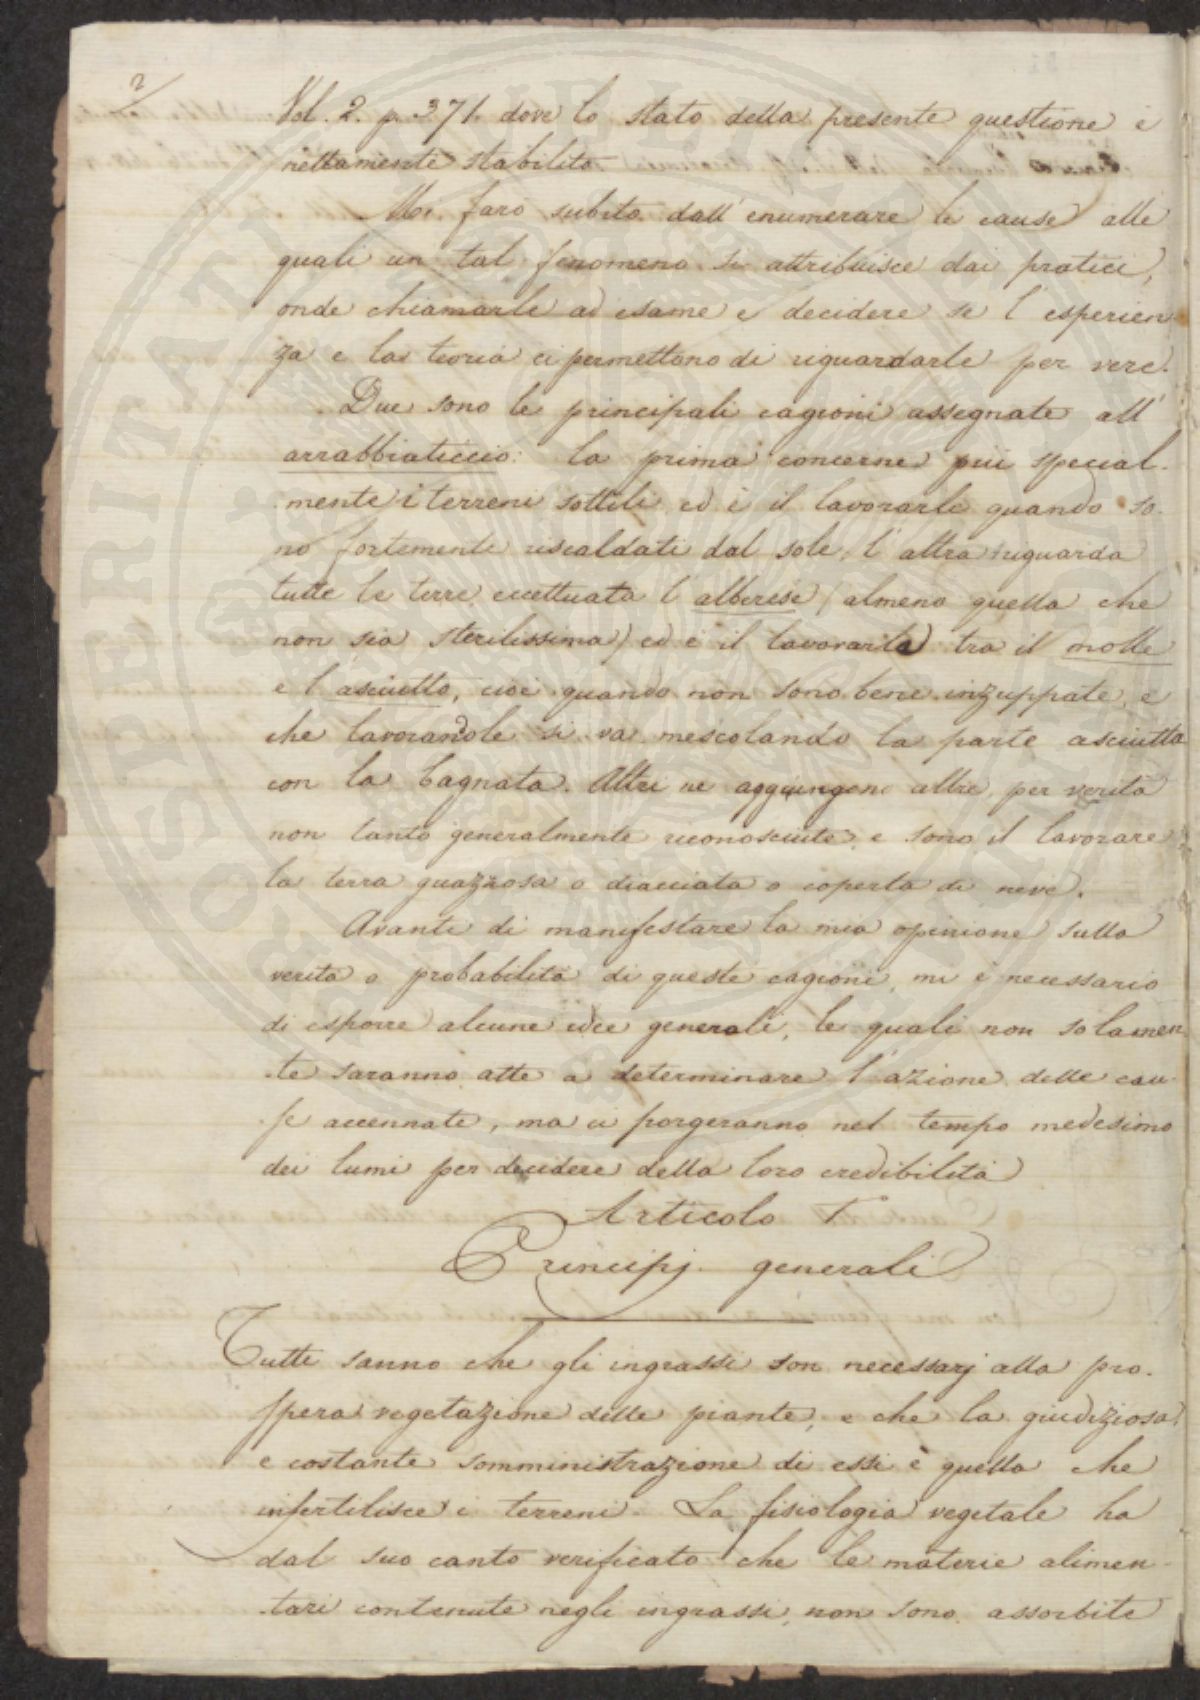 2
Vol. 2. p. 371. dove lo stato della presente questione è
nettamente stabilito.
Mi farò subito dall'enumerare le cause alle
quali un tal fenomeno si attribuisce dai pratici,
onde chiamarle ad esame e decidere se l'esperien
za e la teoria ci permettono di riguardarle per vere.
Due sono le principali cagioni assegnate all'
arrabbiaticcio: la prima concerne più special-
mente i terreni sottili ed è il lavorarle quando so-
no fortemente riscaldati dal sole, l'altra riguarda
tutte le terre eccettuata l'alberese (almeno quella che
non sia sterilissima) ed è il lavorarla tra il molle
e l'asciutto, cioè quando non sono bene inzuppate, e
che lavorandole si va mescolando la parte asciutta
con la bagnata. Altri ne aggiungono altre, per verità
non tanto generalmente riconosciute, e sono il lavorare
la terra guazzosa o diacciata o coperta di neve.
Avanti di manifestare la mia opinione sulla
verità o probabilità di queste cagioni, mi è necessario
di esporre alcune idee generali, le quali non solamen
te saranno atte a determinare l'azione delle cau-
se accennate, ma ci porgeranno nel tempo medesimo
dei lumi per decidere della loro credibilità
Articolo I
Principj generali
Tutti sanno che gli ingrassi son necessarj alla pro-
spera vegetazione delle piante, e che la giudiziosa
e costante somministrazione di essi è quella che
infertilisce i terreni. La fisiologia vegetale ha
dal suo canto verificato che le materie alimen-
tari contenute negli ingrassi, non sono assorbite
PROSPERITATI PUBLICAE